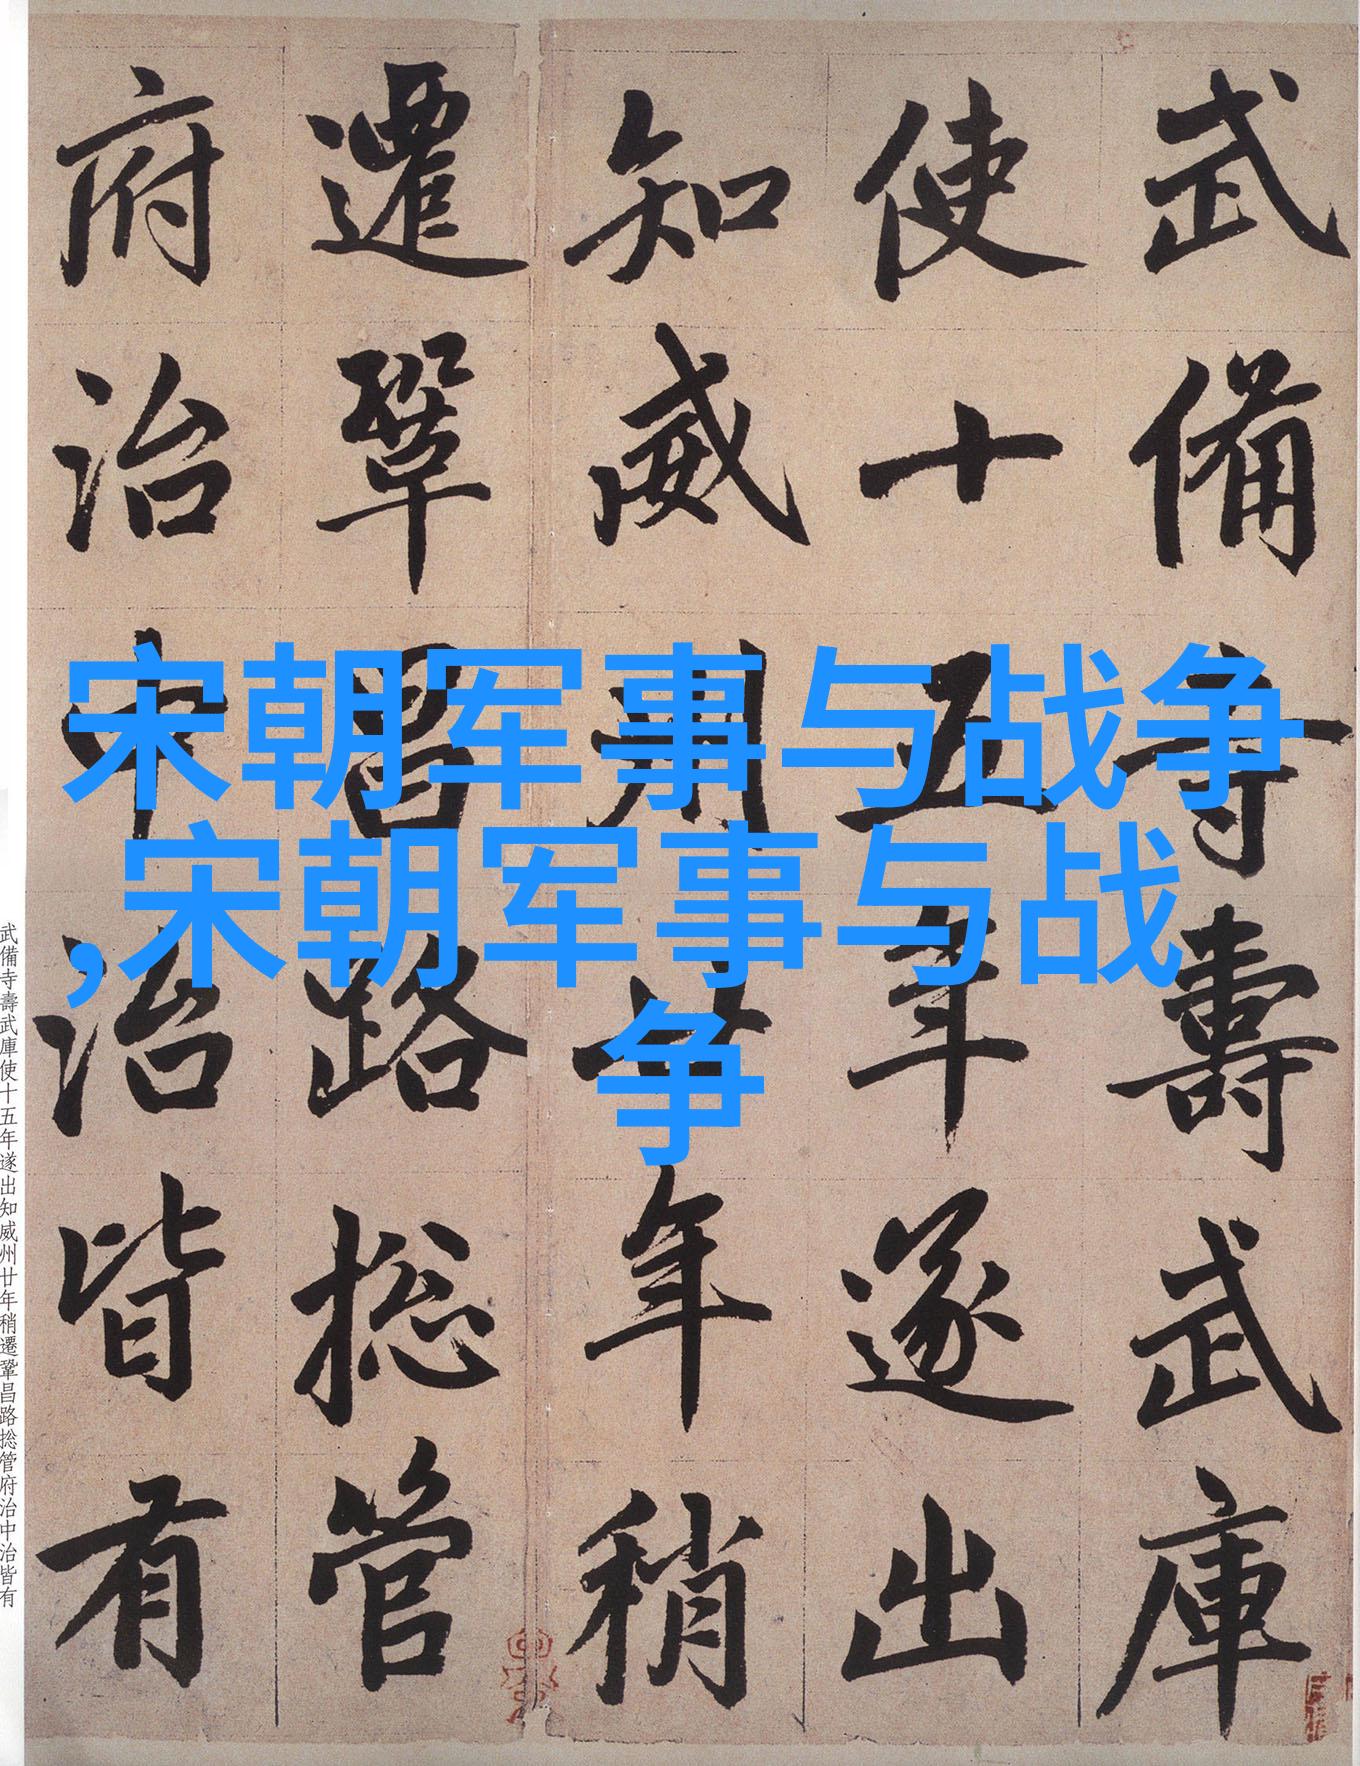 武備寺壽武庫
使十五年遂出
知威州廿年稍
遷鞏昌路捴管
府治中治皆有
宋朝军事与战争
,宋朝军事与战
争
武備寺壽武庫使十五年遂出知威州廿年稍遷鞏昌路捴管府治中治皆有